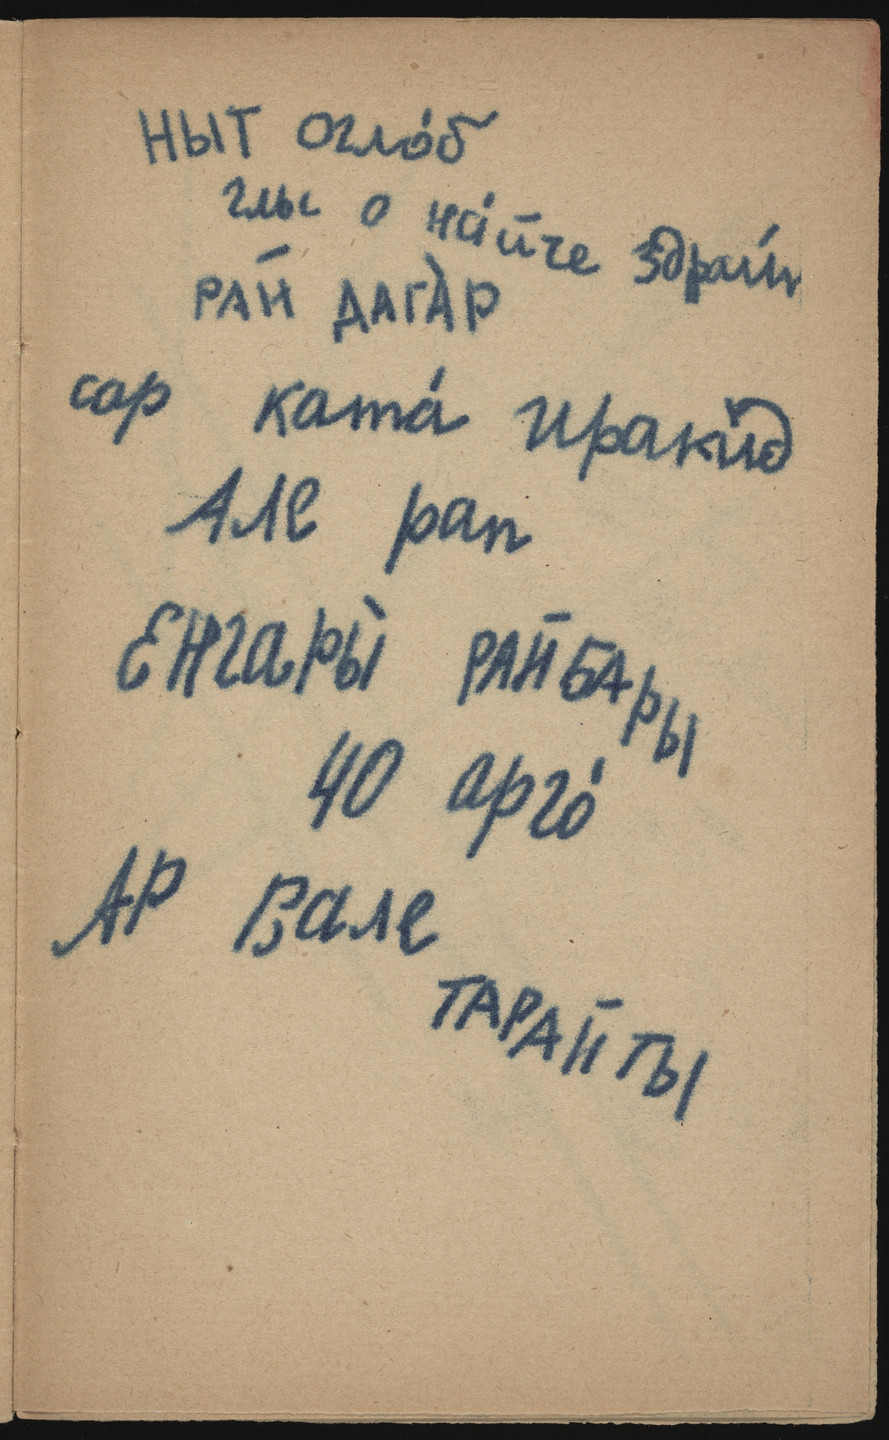 НЫТ Огло́б
глы о на́йче
РАЙ ДАГА́Р
сор ката́ Иракйд
Але рап
Енгары̀ РАЙБАРЫ
ЧО арго́
АР Вале
ТАРАЙТЫ